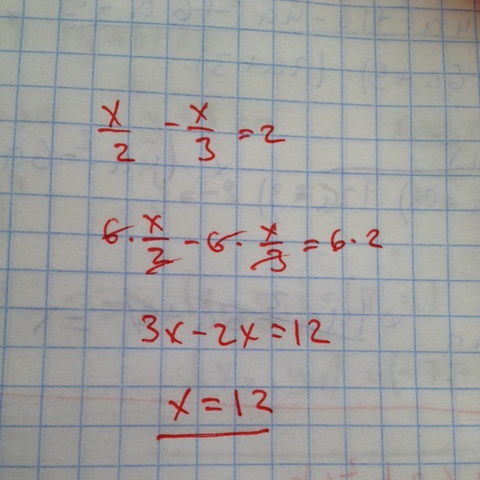 x/2 - x/3 = 2
6·x/2 - 6·x/3 = 6·2
3x-2x=12
x=12